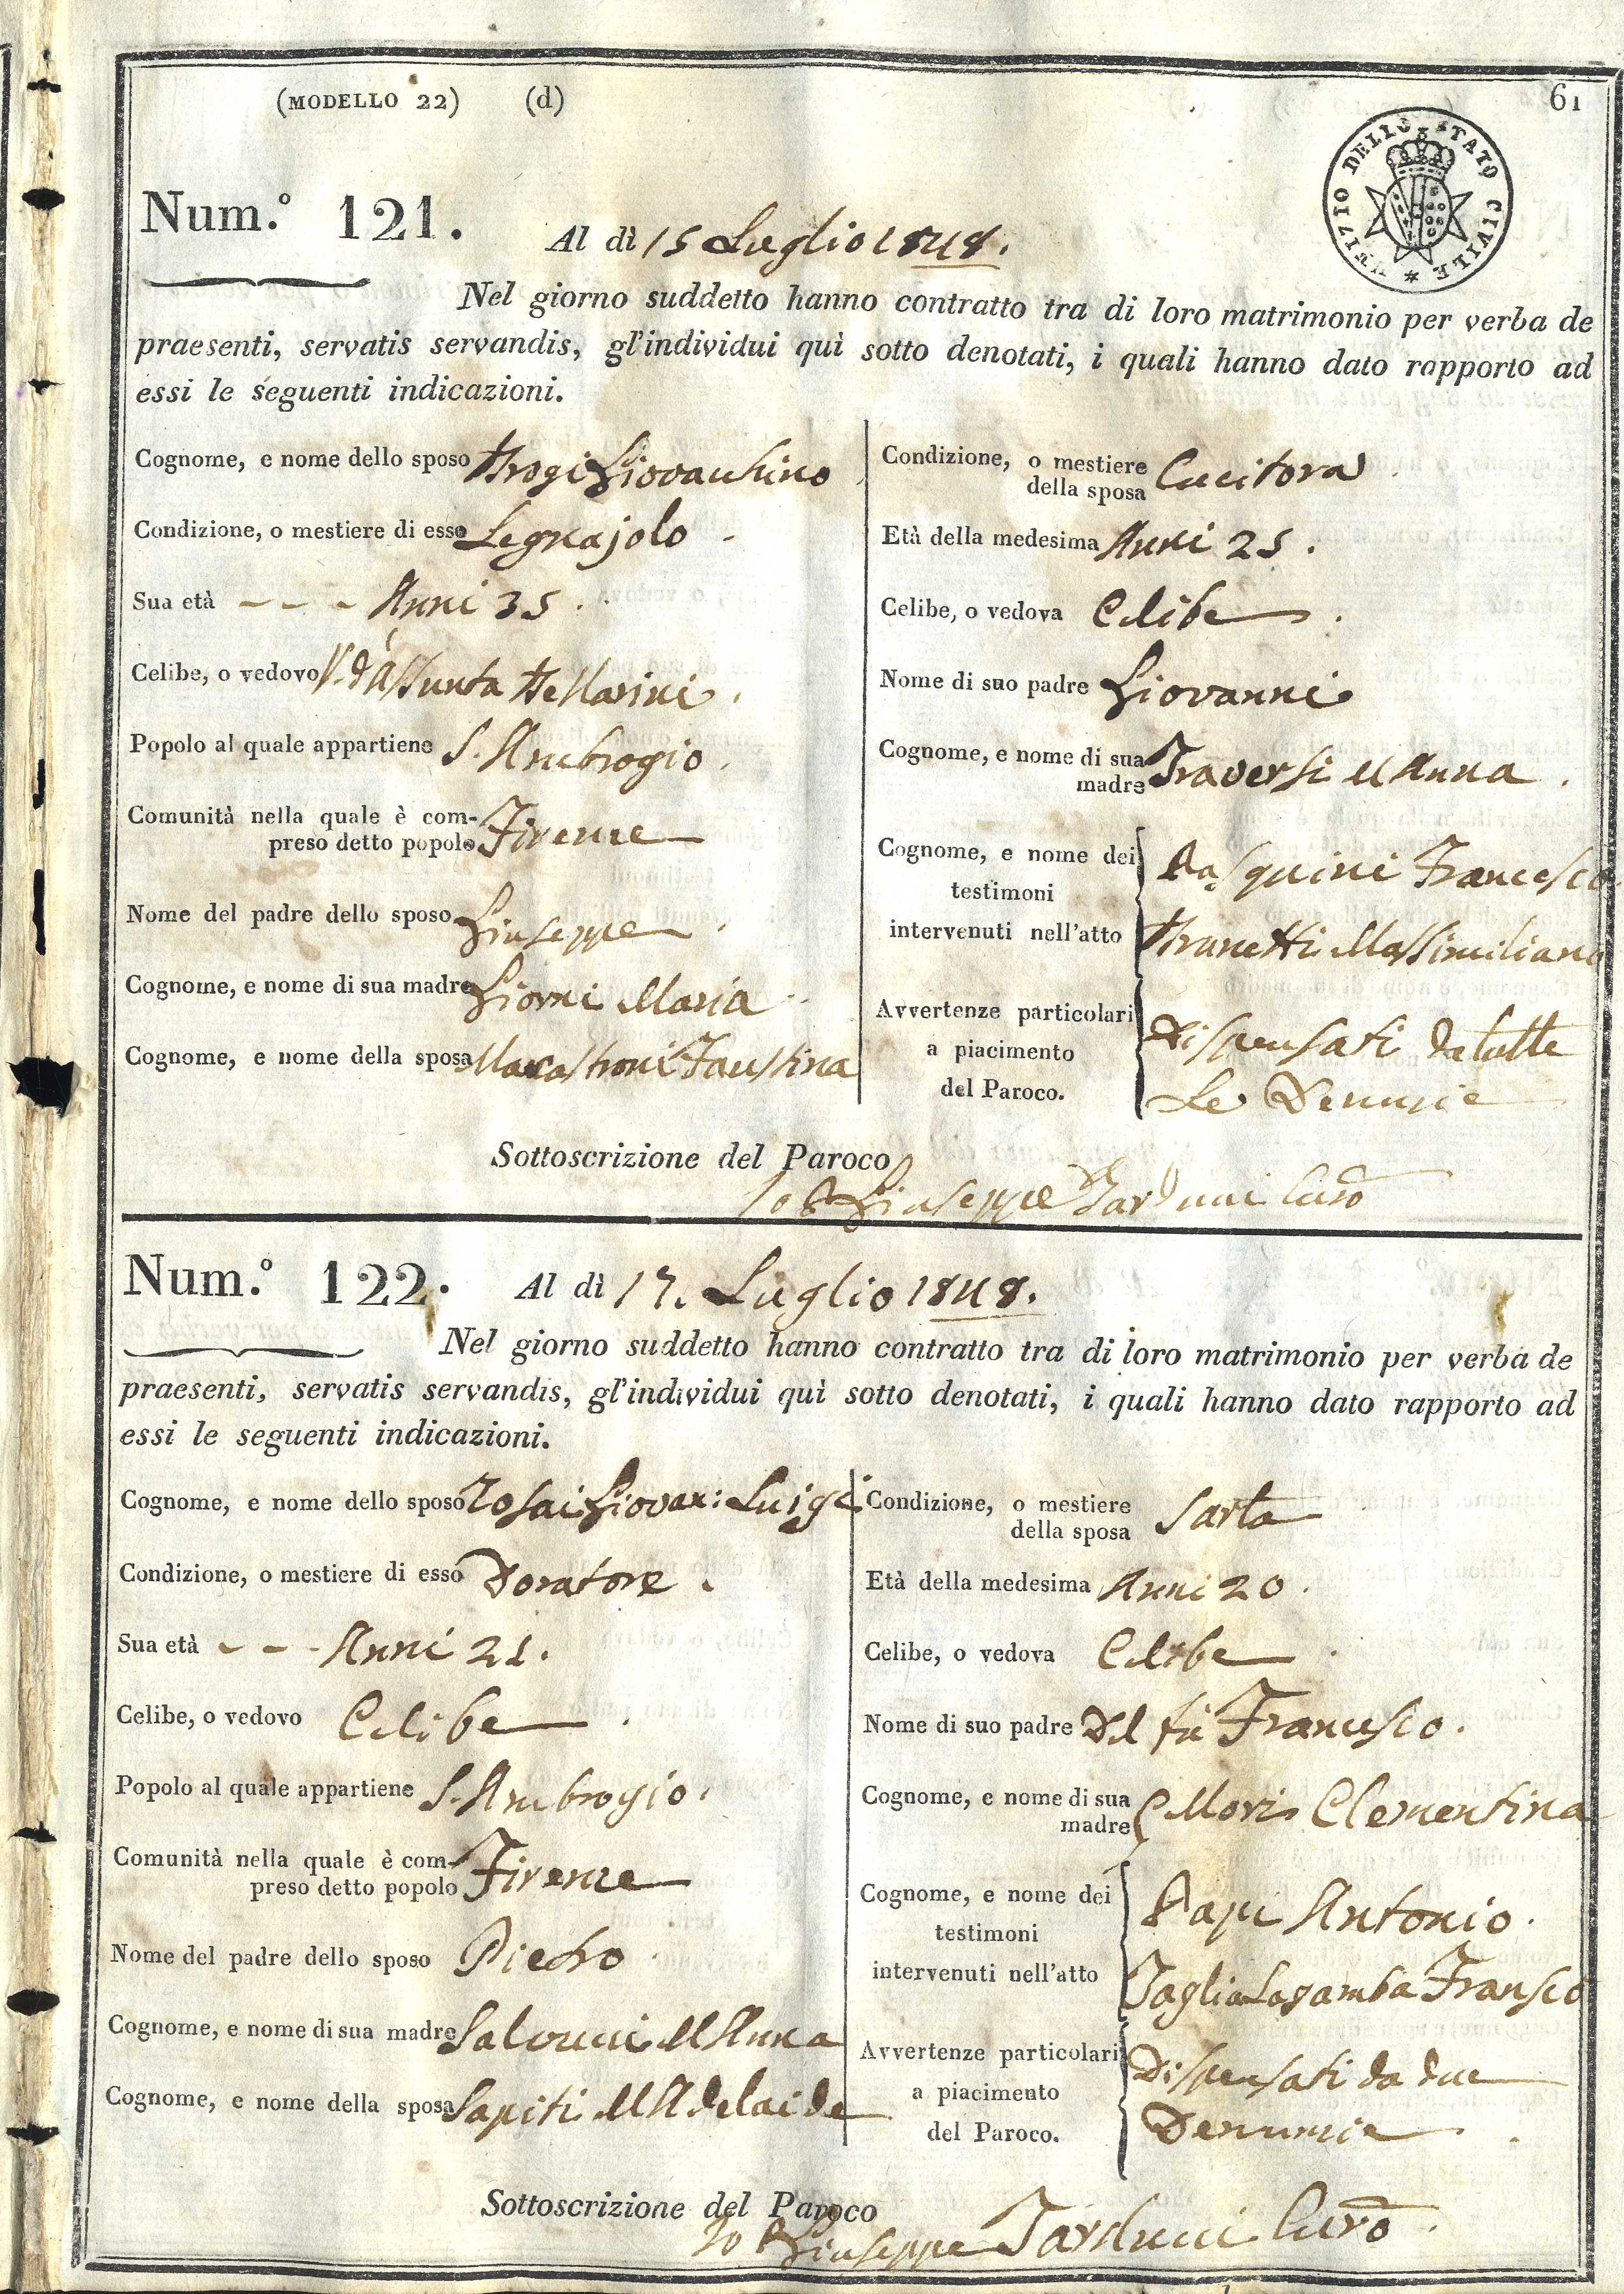 (MODELLO 22) (d)
61
UFIZIO DELLO STATO CIVILE *
Num.º 121. Al dì 15 Luglio 1848.
Nel giorno suddetto hanno contratto tra di loro matrimonio per verba de
praesenti, servatis servandis, gl'individui quì sotto denotati, i quali hanno dato rapporto ad
essi le seguenti indicazioni.
Cognome, e nome dello sposo Brogi Giovacchino
Condizione, o mestiere di esso Legnajolo
Sua età - - - Anni 35.
Celibe, o vedovo V. d'Assunta Bellarini.
Popolo al quale appartiene S. Ambrogio.
Comunità nella quale è com-
preso detto popolo Firenze
Nome del padre dello sposo Giuseppe.
Cognome, e nome di sua madre Giorni Maria
Cognome, e nome della sposa Faustina
Condizione, o mestiere
della sposa Cucitora
Età della medesima Anni 25.
Celibe, o vedova Celibe.
Nome di suo padre Giovanni
Cognome, e nome di sua
madre Traversi M Anna.
Cognome, e nome dei
testimoni
intervenuti nell'atto
Pasquini Francesco
Brunetti Massimiliano
Avvertenze particolari
a piacimento
del Paroco.
Dispensati da tutte
Le Denunzie
Sottoscrizione del Paroco
Io P. Giuseppe Tarducci Curo
Num.º 122. Al dì 17. Luglio 1848.
Nel giorno suddetto hanno contratto tra di loro matrimonio per verba de
praesenti, servatis servandis, gl'individui quì sotto denotati, i quali hanno dato rapporto ad
essi le seguenti indicazioni.
Cognome, e nome dello sposo Rosai Giovan: Luigi
Condizione, o mestiere di esso Doratore.
Sua età - - - Anni 21.
Celibe, o vedovo Celibe.
Popolo al quale appartiene S. Ambrogio.
Comunità nella quale è com-
preso detto popolo Firenze
Nome del padre dello sposo Pietro
Cognome, e nome di sua madre Salvucci M Anna
Cognome, e nome della sposa Sapiti M Adelaide
Condizione, o mestiere
della sposa Sarta
Età della medesima Anni 20.
Celibe, o vedova Celibe.
Nome di suo padre Del fù Francesco.
Cognome, e nome di sua
madre Mori Clementina
Cognome, e nome dei
testimoni
intervenuti nell'atto
Papi Antonio.
Taglialagamba Fransco
Avvertenze particolari
a piacimento
del Paroco.
Dispensati da due
Denunzie
Sottoscrizione del Paroco
Io P. Giuseppe Tarducci Curo.